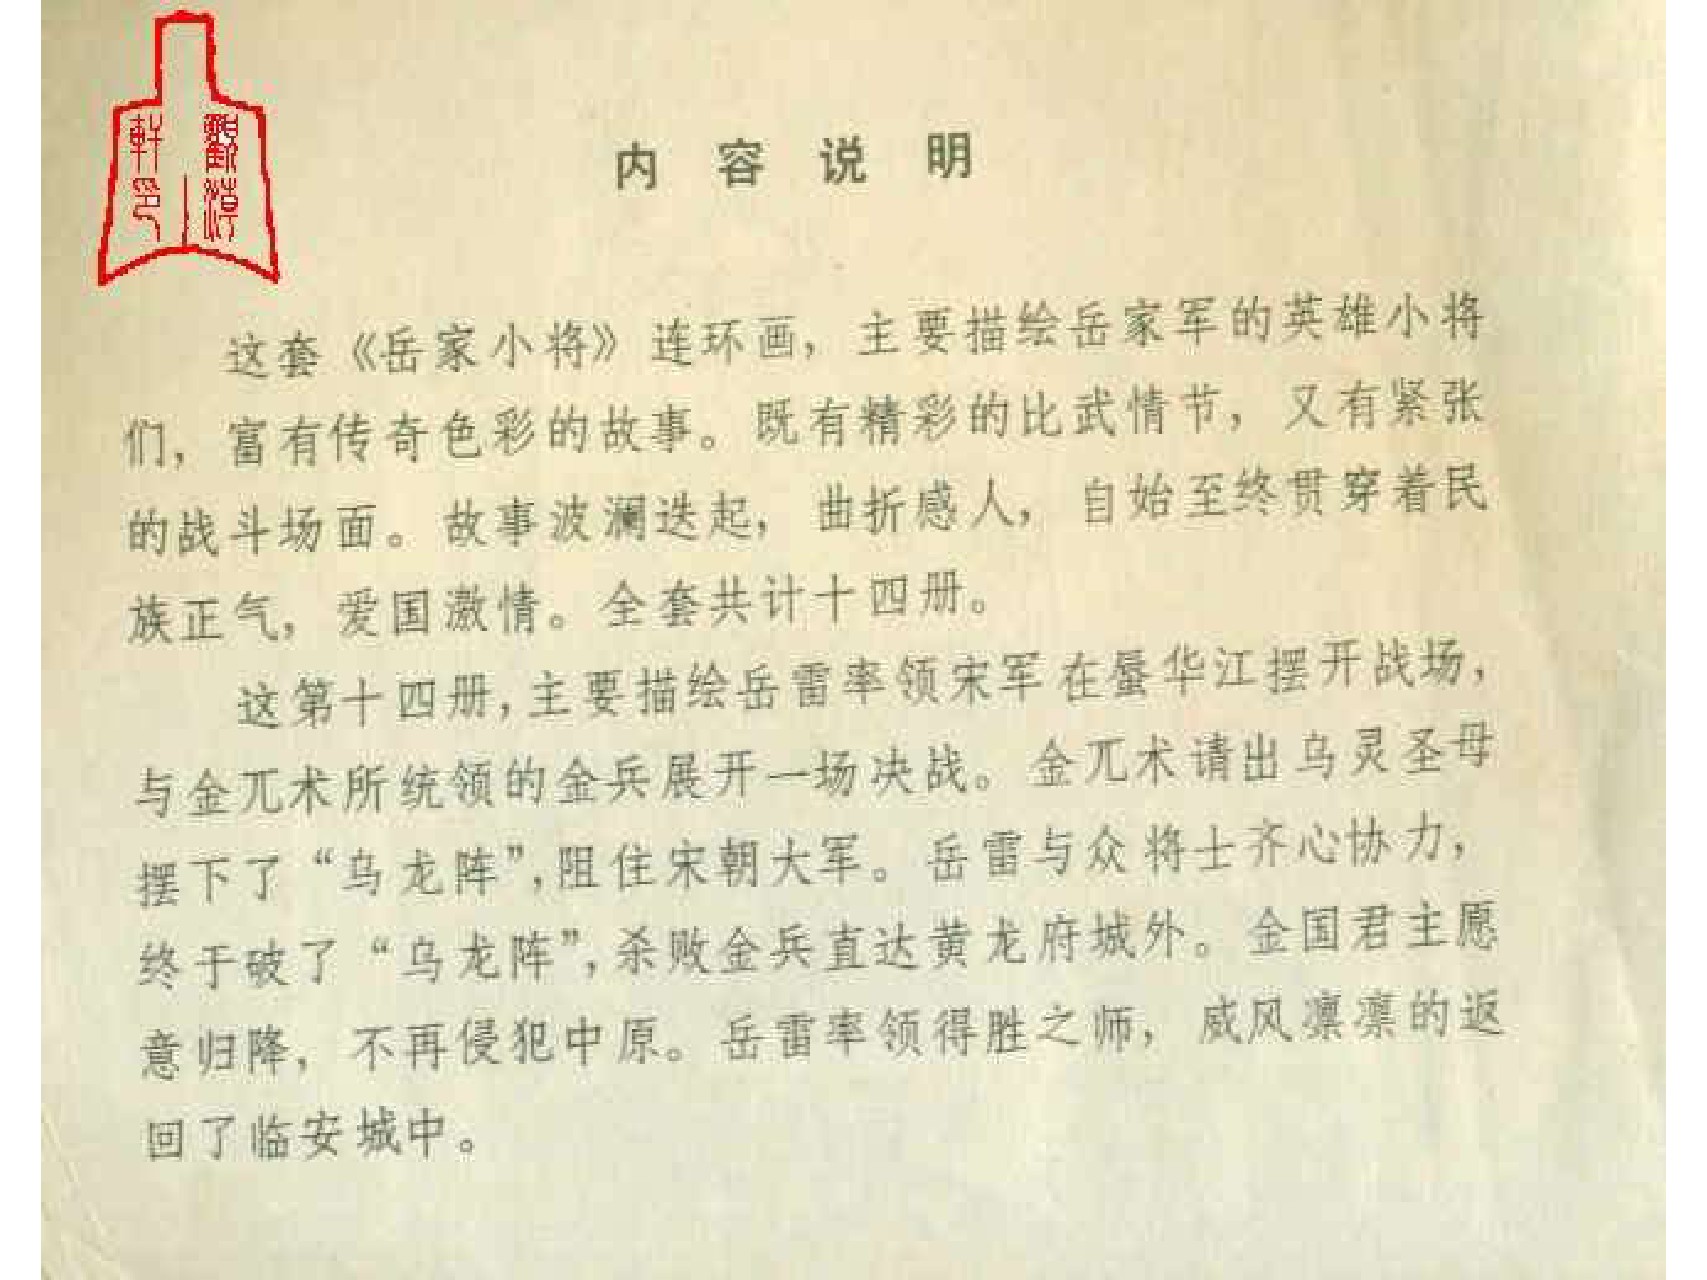 内容说明
这套《岳家小将》连环画，主要描绘岳家军的英雄小将
们，富有传奇色彩的故事。既有精彩的比武情节，又有紧张
的战斗场面。故事波澜迭起，曲折感人，自始至终贯穿着民
族正气，爱国激情。全套共计十四册。
这第十四册，主要描绘岳雷率领宋军在蜃华江摆开战场，
与金兀术所统领的金兵展开一场决战。金兀术请出乌灵圣母
摆下了“乌龙阵”，阻住宋朝大军。岳雷与众将士齐心协力，
终于破了“乌龙阵”，杀败金兵直达黄龙府城外。金国君主愿
意归降，不再侵犯中原。岳雷率领得胜之师，威风凛凛的返
回了临安城中。